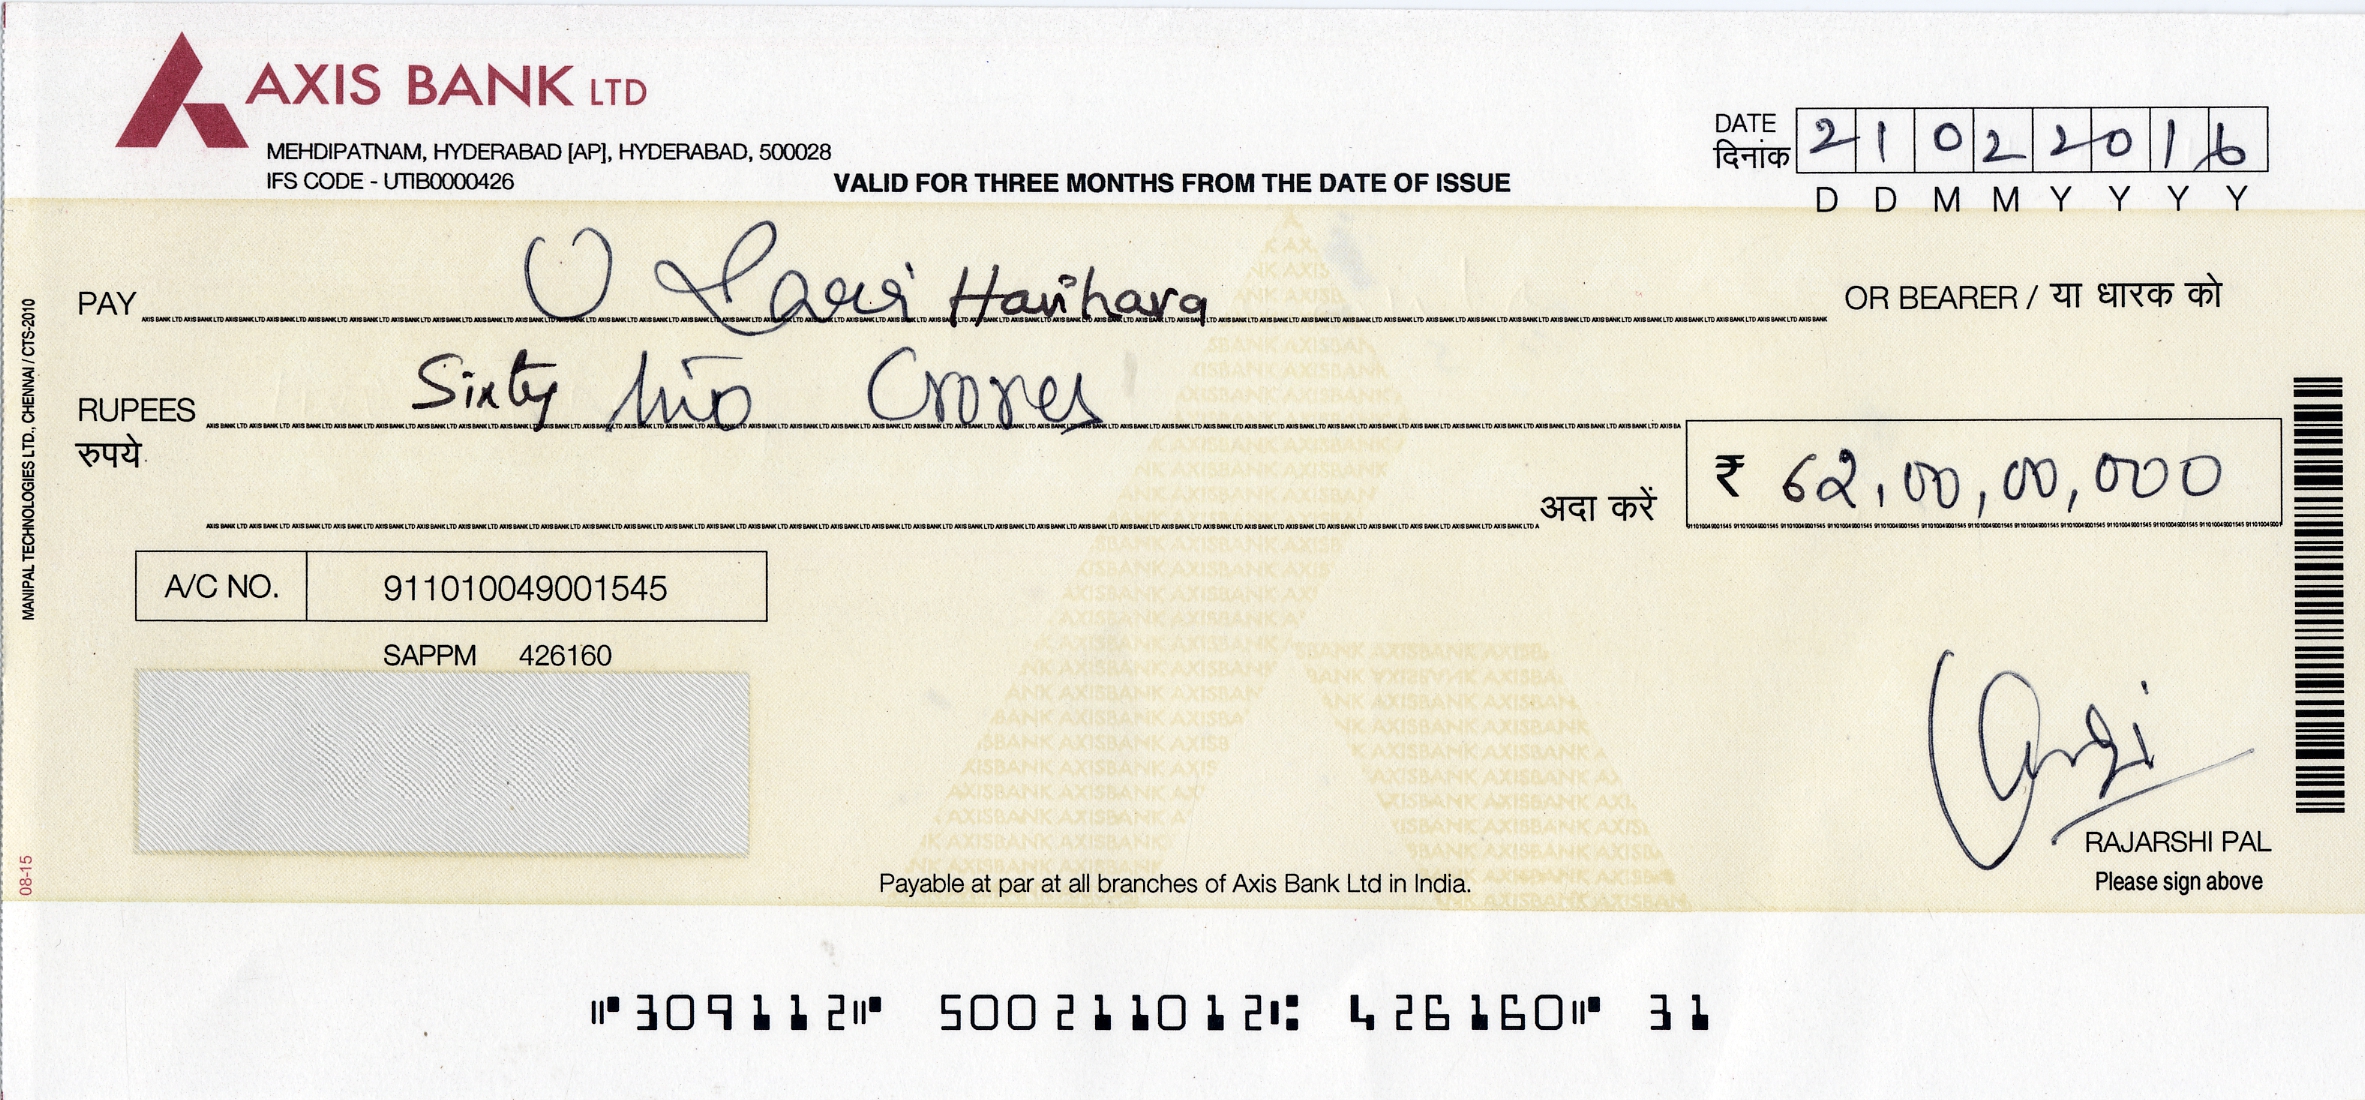 AXIS BANK LTD
MEHDIPATNAM, HYDERABAD [AP], HYDERABAD, 500028
IFS CODE - UTIB0000426
VALID FOR THREE MONTHS FROM THE DATE OF ISSUE
DATE
दिनांक
2 1 0 2 2 0 1 6
D D M M Y Y Y Y
PAY Harihara OR BEARER / या धारक को
RUPEES Sixty two Crores
रुपये
अदा करें ₹ 62,00,00,000
A/C NO. 911010049001545
SAPPM 426160
VOID
RAJARSHI PAL
Please sign above
Payable at par at all branches of Axis Bank Ltd in India.
⑈309112⑈ 500211012⑆ 426160⑈ 31
MANIPAL TECHNOLOGIES LTD., CHENNAI / CTS-2010
08-15